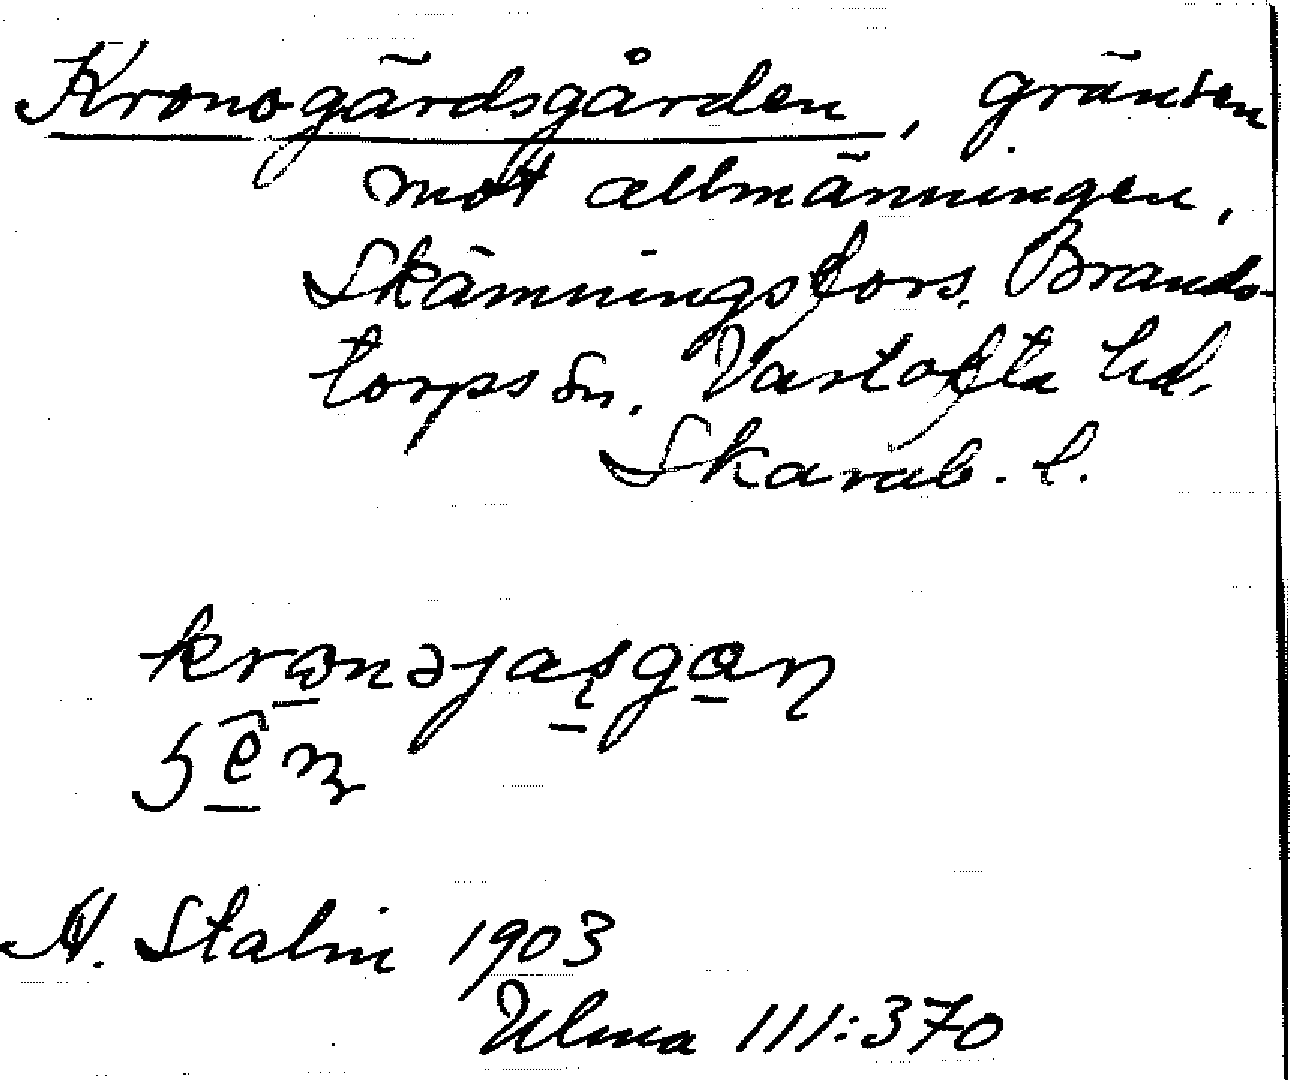 Kronogärdsgården, gränsen
mot allmänningen,
Skämningsfors. Brands-
torps sn. Vartofta hd,
Skarab. l.
A. Stalin 1903
Ulma 111:370